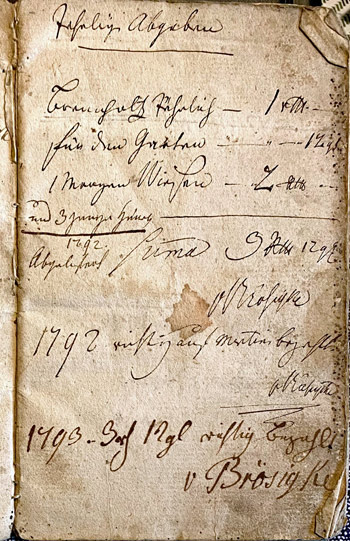 Jehrlige Abgaben
Brennholtz Jehrlich — 1 rthl. —
für den Garten — " — 12 gl
1 Morgen Wiesen — 2 rthl —
und 3 junge Hüner
1792.
Abgeliefert Suma 3 rthl 12 gl
v Brösigke
1792 richtig auf Martini bezahlt
v Brösigke
1793 - 3 rth 12 gl richtig bezahlt
v Brösigke